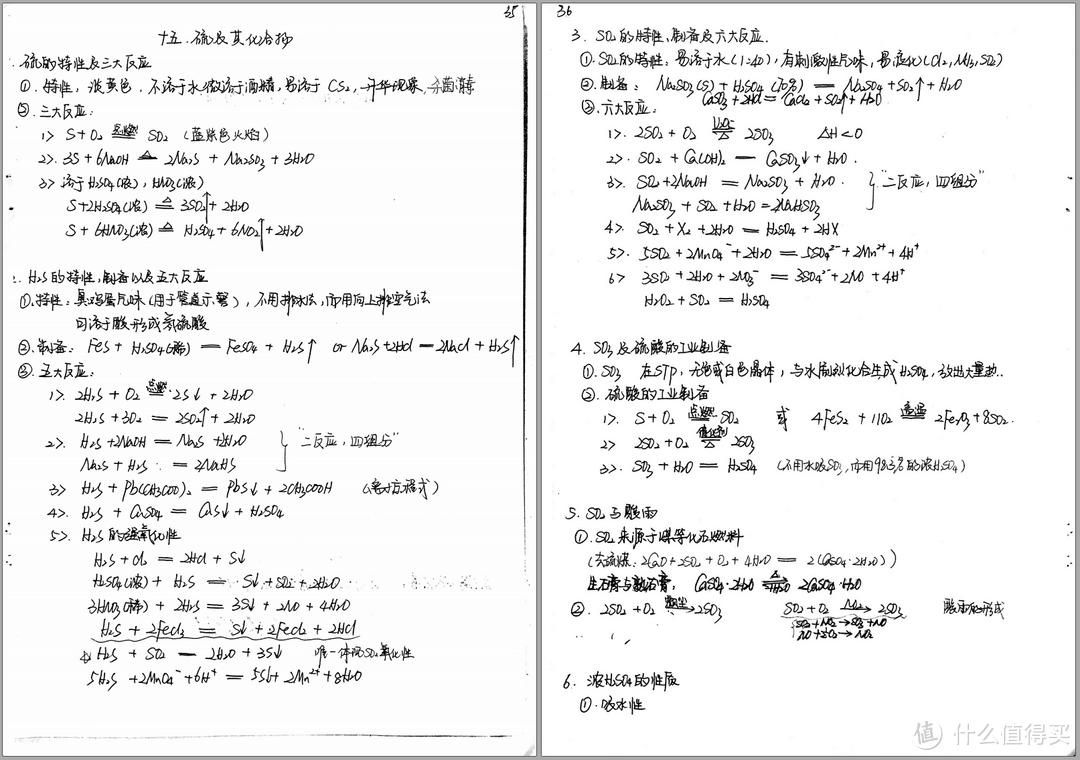 35
十五. 硫及其化合物
硫的特性及三大反应
①. 特性: 淡黄色, 不溶于水微溶于酒精, 易溶于 CS₂, 升华现象,
②. 三大反应:
1> S+O₂ 点燃═ SO₂ (蓝紫色火焰)
2>. 3S+6NaOH △═ 2Na₂S + Na₂SO₃ + 3H₂O
3> 溶于H₂SO₄(浓), HNO₃(浓)
S+2H₂SO₄(浓) △═ 3SO₂↑+2H₂O
S + 6HNO₃(浓) △═ H₂SO₄+6NO₂↑+2H₂O
H₂S的特性, 制备以及五大反应
①. 特性: 臭鸡蛋气味(用于管道示警), 不用排水法, 而用向上排空气法
可溶于酸形成氢硫酸
②. 制备: FeS + H₂SO₄(稀) ═ FeSO₄ + H₂S↑ or Na₂S+2HCl ═ 2NaCl + H₂S↑
③. 五大反应:
1>. 2H₂S + O₂ 点燃═ 2S↓ + 2H₂O
2H₂S + 3O₂ ═ 2SO₂↑+2H₂O
2>. H₂S +2NaOH ═ Na₂S +2H₂O
Na₂S + H₂S ═ 2NaHS
"二反应, 四组分"
3> H₂S + Pb(CH₃COO)₂ ═ PbS↓ + 2CH₃COOH (离子方程式)
4>. H₂S + CuSO₄ ═ CuS↓ + H₂SO₄
5>. H₂S的强氧化性
H₂S + Cl₂ ═ 2HCl + S↓
H₂SO₄(浓) + H₂S ═ S↓+SO₂+2H₂O
3HNO₃(稀) + 2H₂S ═ 3S↓ + 2NO + 4H₂O
H₂S + 2FeCl₃ ═ S↓ + 2FeCl₂ + 2HCl
H₂S + SO₂ ═ 2H₂O + 3S↓ 唯一体现SO₂氧化性
5H₂S +2MnO₄⁻ +6H⁺ ═ 5S↓+ 2Mn²⁺ +8H₂O
36
3. SO₂的特性, 制备及六大反应.
①. SO₂的特性: 易溶于水(1:40), 有刺激性气味, 易液化(Cl₂, NH₃, SO₂)
②. 制备: Na₂SO₃(S) + H₂SO₄(70%) ═ Na₂SO₄+SO₂↑ + H₂O
CaSO₃+2HCl ═ CaCl₂ + SO₂↑+ H₂O
③. 六大反应:
1>. 2SO₂ + O₂ V₂O₅═△ 2SO₃ △H<0
2>. SO₂ + Ca(OH)₂ ═ CaSO₃↓ + H₂O.
3>. SO₂+2NaOH ═ Na₂SO₃ + H₂O.
Na₂SO₃ + SO₂ +H₂O═2NaHSO₃
"二反应, 四组分"
4>. SO₂ + X₂ +2H₂O ═ H₂SO₄ + 2HX
5>. 5SO₂+2MnO₄⁻ +2H₂O ═ 5SO₄²⁻+2Mn²⁺ + 4H⁺
6> 3SO₂ +2H₂O + 2NO₃⁻ ═ 3SO₄²⁻ +2NO +4H⁺
H₂O₂ + SO₂ ═ H₂SO₄
4. SO₃及硫酸的工业制备
①. SO₃ 在STP, 无色或白色晶体, 与水剧烈化合生成H₂SO₄, 放出大量热..
②. 硫酸的工业制备
1>. S+O₂ 点燃═ SO₂ 或 4FeS₂ + 11O₂ 高温═ 2Fe₂O₃+8SO₂.
2> 2SO₂+O₂ 催化剂═△ 2SO₃
3>. SO₃ + H₂O ═ H₂SO₄ (不用水吸SO₃, 而用98.3%的浓H₂SO₄)
5. SO₂与酸雨
①. SO₂来源于煤等化石燃料
(去硫煤: 2CaO+2SO₂ + O₂ + 4H₂O ═ 2(CaSO₄·2H₂O))
生石膏与熟石膏: CaSO₄·2H₂O 2CaSO₄·H₂O
②. 2SO₂+O₂ 飘尘→2SO₃ SO₂+O₂ NO₂→ 2SO₃ 酸雨的形成
SO₂+NO₂→SO₃+NO
NO+O₂→NO₂
6. 浓H₂SO₄的性质
①. 吸水性
值 什么值得买